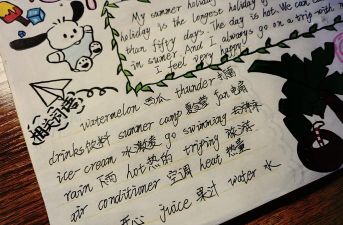 My summer holiday
holiday is the longest holiday of
than fifty days. The day is hot. We can
in sumer. And I always go on a trip with m
I feel very happy!
相关词语
Watermelon 西瓜 thunder
drinks 饮料 summer camp 夏令营 fan 电扇
ice-cream 冰激凌 go swimming 去游泳
rain 雨 hot 热的 triping 旅游
air conditioner 空调 heat 热量
开心 juice 果汁 water 水